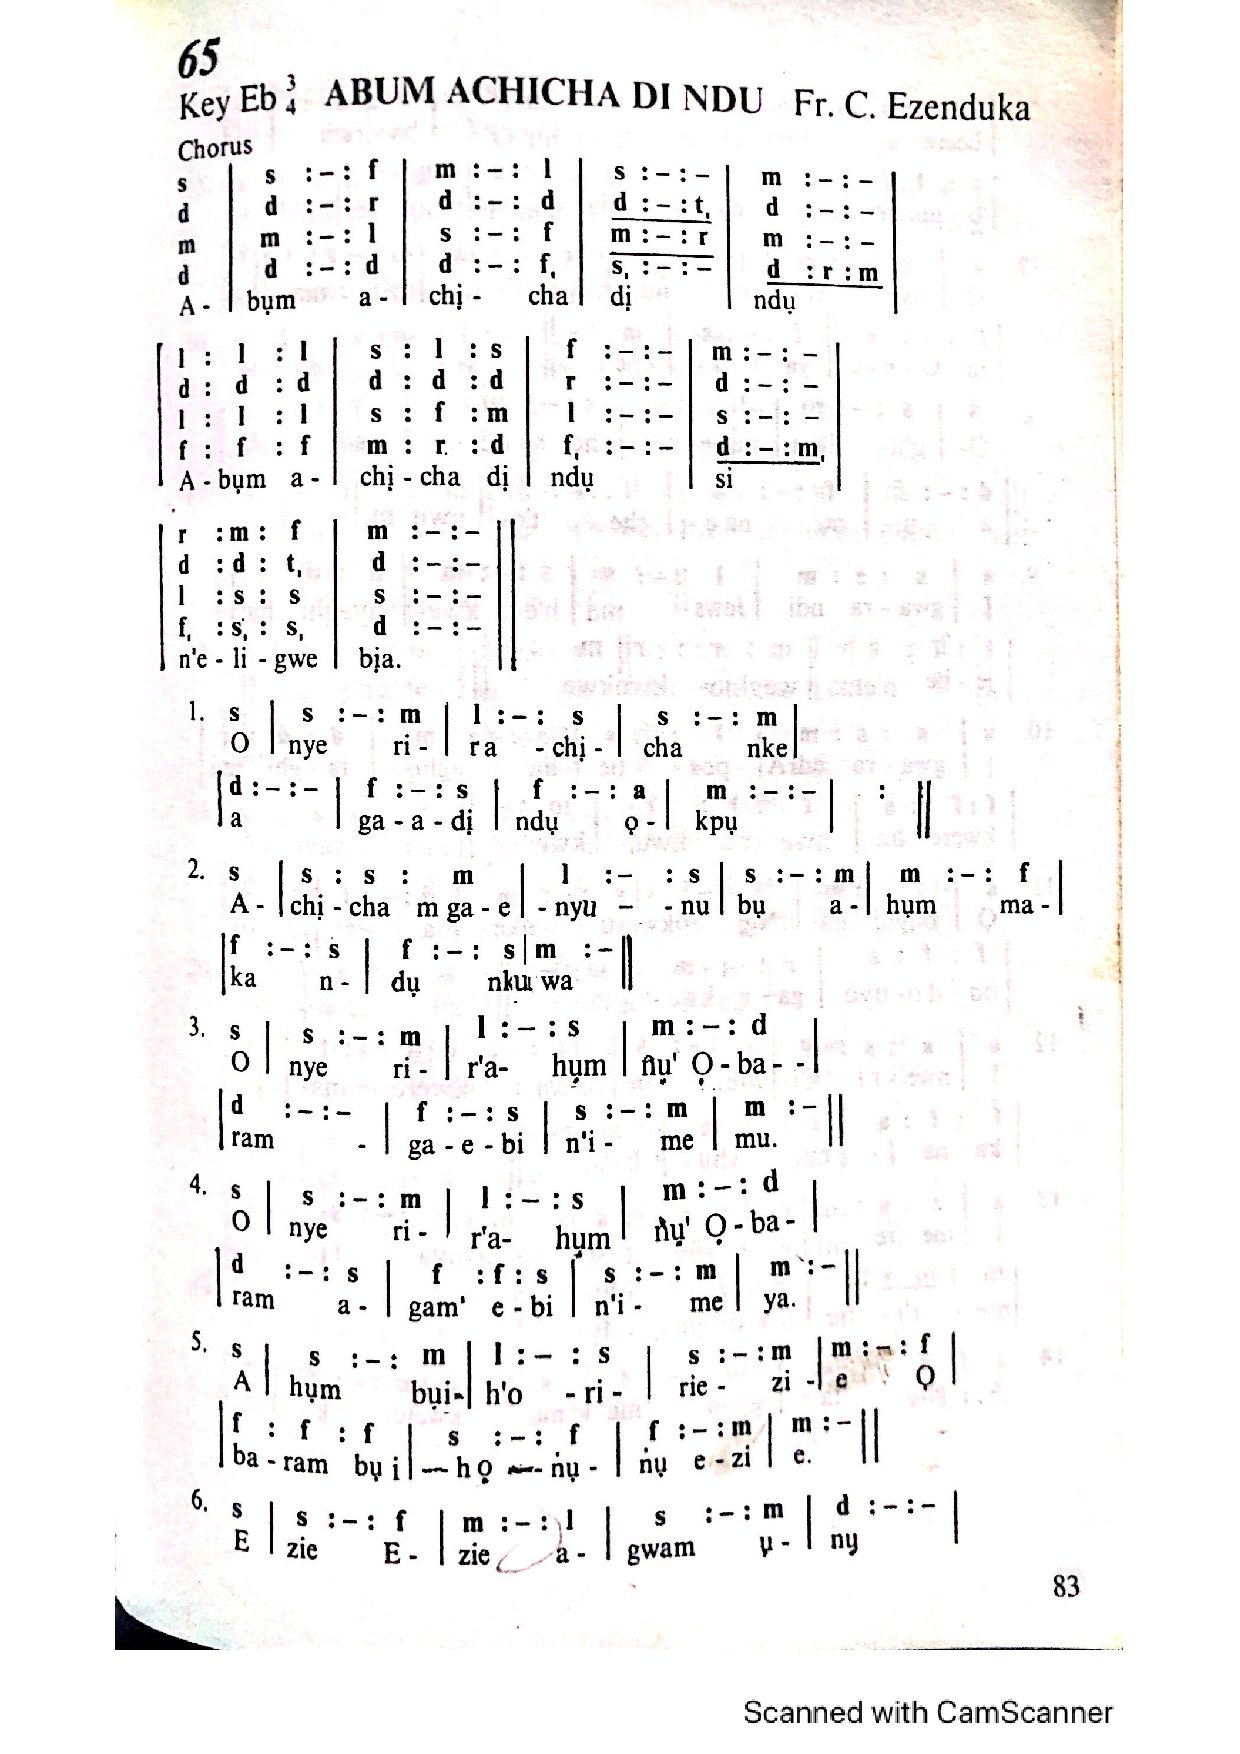 65
Key Eb 3/4 ABUM ACHICHA DI NDU Fr. C. Ezenduka
Chorus
s | s :–: f | m :–: l | s :–:– | m :–:– |
d | d :–: r | d :–: d | d :–: t, | d :–:– |
m | m :–: l | s :–: f | m :–: r | m :–:– |
d | d :–: d | d :–: f, | s, :–:– | d : r : m |
A- | bụm a- | chị- cha | dị | ndụ |
| l : l : l | s : l : s | f :–:– | m :–:– |
| d : d : d | d : d : d | r :–:– | d :–:– |
| l : l : l | s : f : m | l :–:– | s :–:– |
| f : f : f | m : r. : d | f, :–:– | d :–: m, |
| A-bụm a- | chị-cha dị | ndụ | si |
| r : m : f | m :–:– ||
| d : d : t, | d :–:– ||
| l : s : s | s :–:– ||
| f, : s, : s, | d :–:– ||
| n'e - li - gwe | bịa. ||
1. s | s :–: m | l :–: s | s :–: m |
O | nye ri- | ra -chị- | cha nke |
| d :–:– | f :–: s | f :–: a | m :–:– | : ||
| a | ga-a-dị | ndụ ọ- | kpụ | ||
2. s | s : s : m | l :– : s | s :–: m | m :–: f |
A- | chị-cha m ga-e | -nyu – -nu | bụ a- | hụm ma- |
| f :–: s | f :–: s | m :– ||
| ka n- | dụ nkụ wa ||
3. s | s :–: m | l :–: s | m :–: d |
O | nye ri- | r'a- hụm | ñụ' Ọ-ba-- |
| d :–:– | f :–: s | s :–: m | m :– ||
| ram - | ga-e-bi | n'i- me | mu. ||
4. s | s :–: m | l :–: s | m :–: d |
O | nye ri- | r'a- hụm | ñụ' Ọ-ba- |
| d :–: s | f : f : s | s :–: m | m :– ||
| ram a- | gam' e-bi | n'i- me | ya. ||
5. s | s :–: m | l :– : s | s :–: m | m :–: f |
A | hụm bụi- | h'o -ri- | rie- zi- | e Ọ |
| f : f : f | s :–: f | f :–: m | m :– ||
| ba-ram bụ i | —họ —ṅụ- | ṅụ e-zi | e. ||
6. s | s :–: f | m :–: l | s :–: m | d :–:– |
E | zie E- | zie a- | gwam ụ- | nụ |
83
Scanned with CamScanner